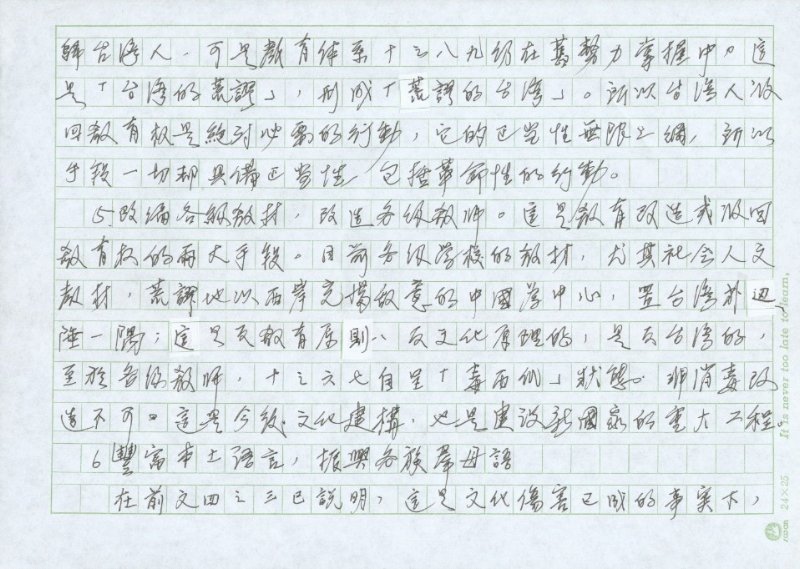 歸台灣人,可是教育体系十之八九仍在舊勢力掌握中。這
是「台灣的荒謬」,形成「荒謬的台灣」。所以台灣人收
回教育权是絕对必要的行動,它的正當性無限上綱,所以
手段一切都具備正當性,包括革命性的行動。
5.改編各級教材,改造各级教师。這是教育改造或收回
教育权的兩大手段。目前各级学校的教材,尤其社会人文
教材,荒謬地以西岸充滿敌意的中國為中心,置台灣於边
陲一隅;這是反教育原則、反文化原理的,是反台灣的,
至於各级教师,十之六七自呈「毒西仙」狀態。非消毒改
造不可。這是今後文化建構,也是建设新國家的重大工程。
6豐富本土语言,振興各族羣母語
在前文四之三已說明,這是文化傷害已成的事实下,
It is never too late to learn.
24×25